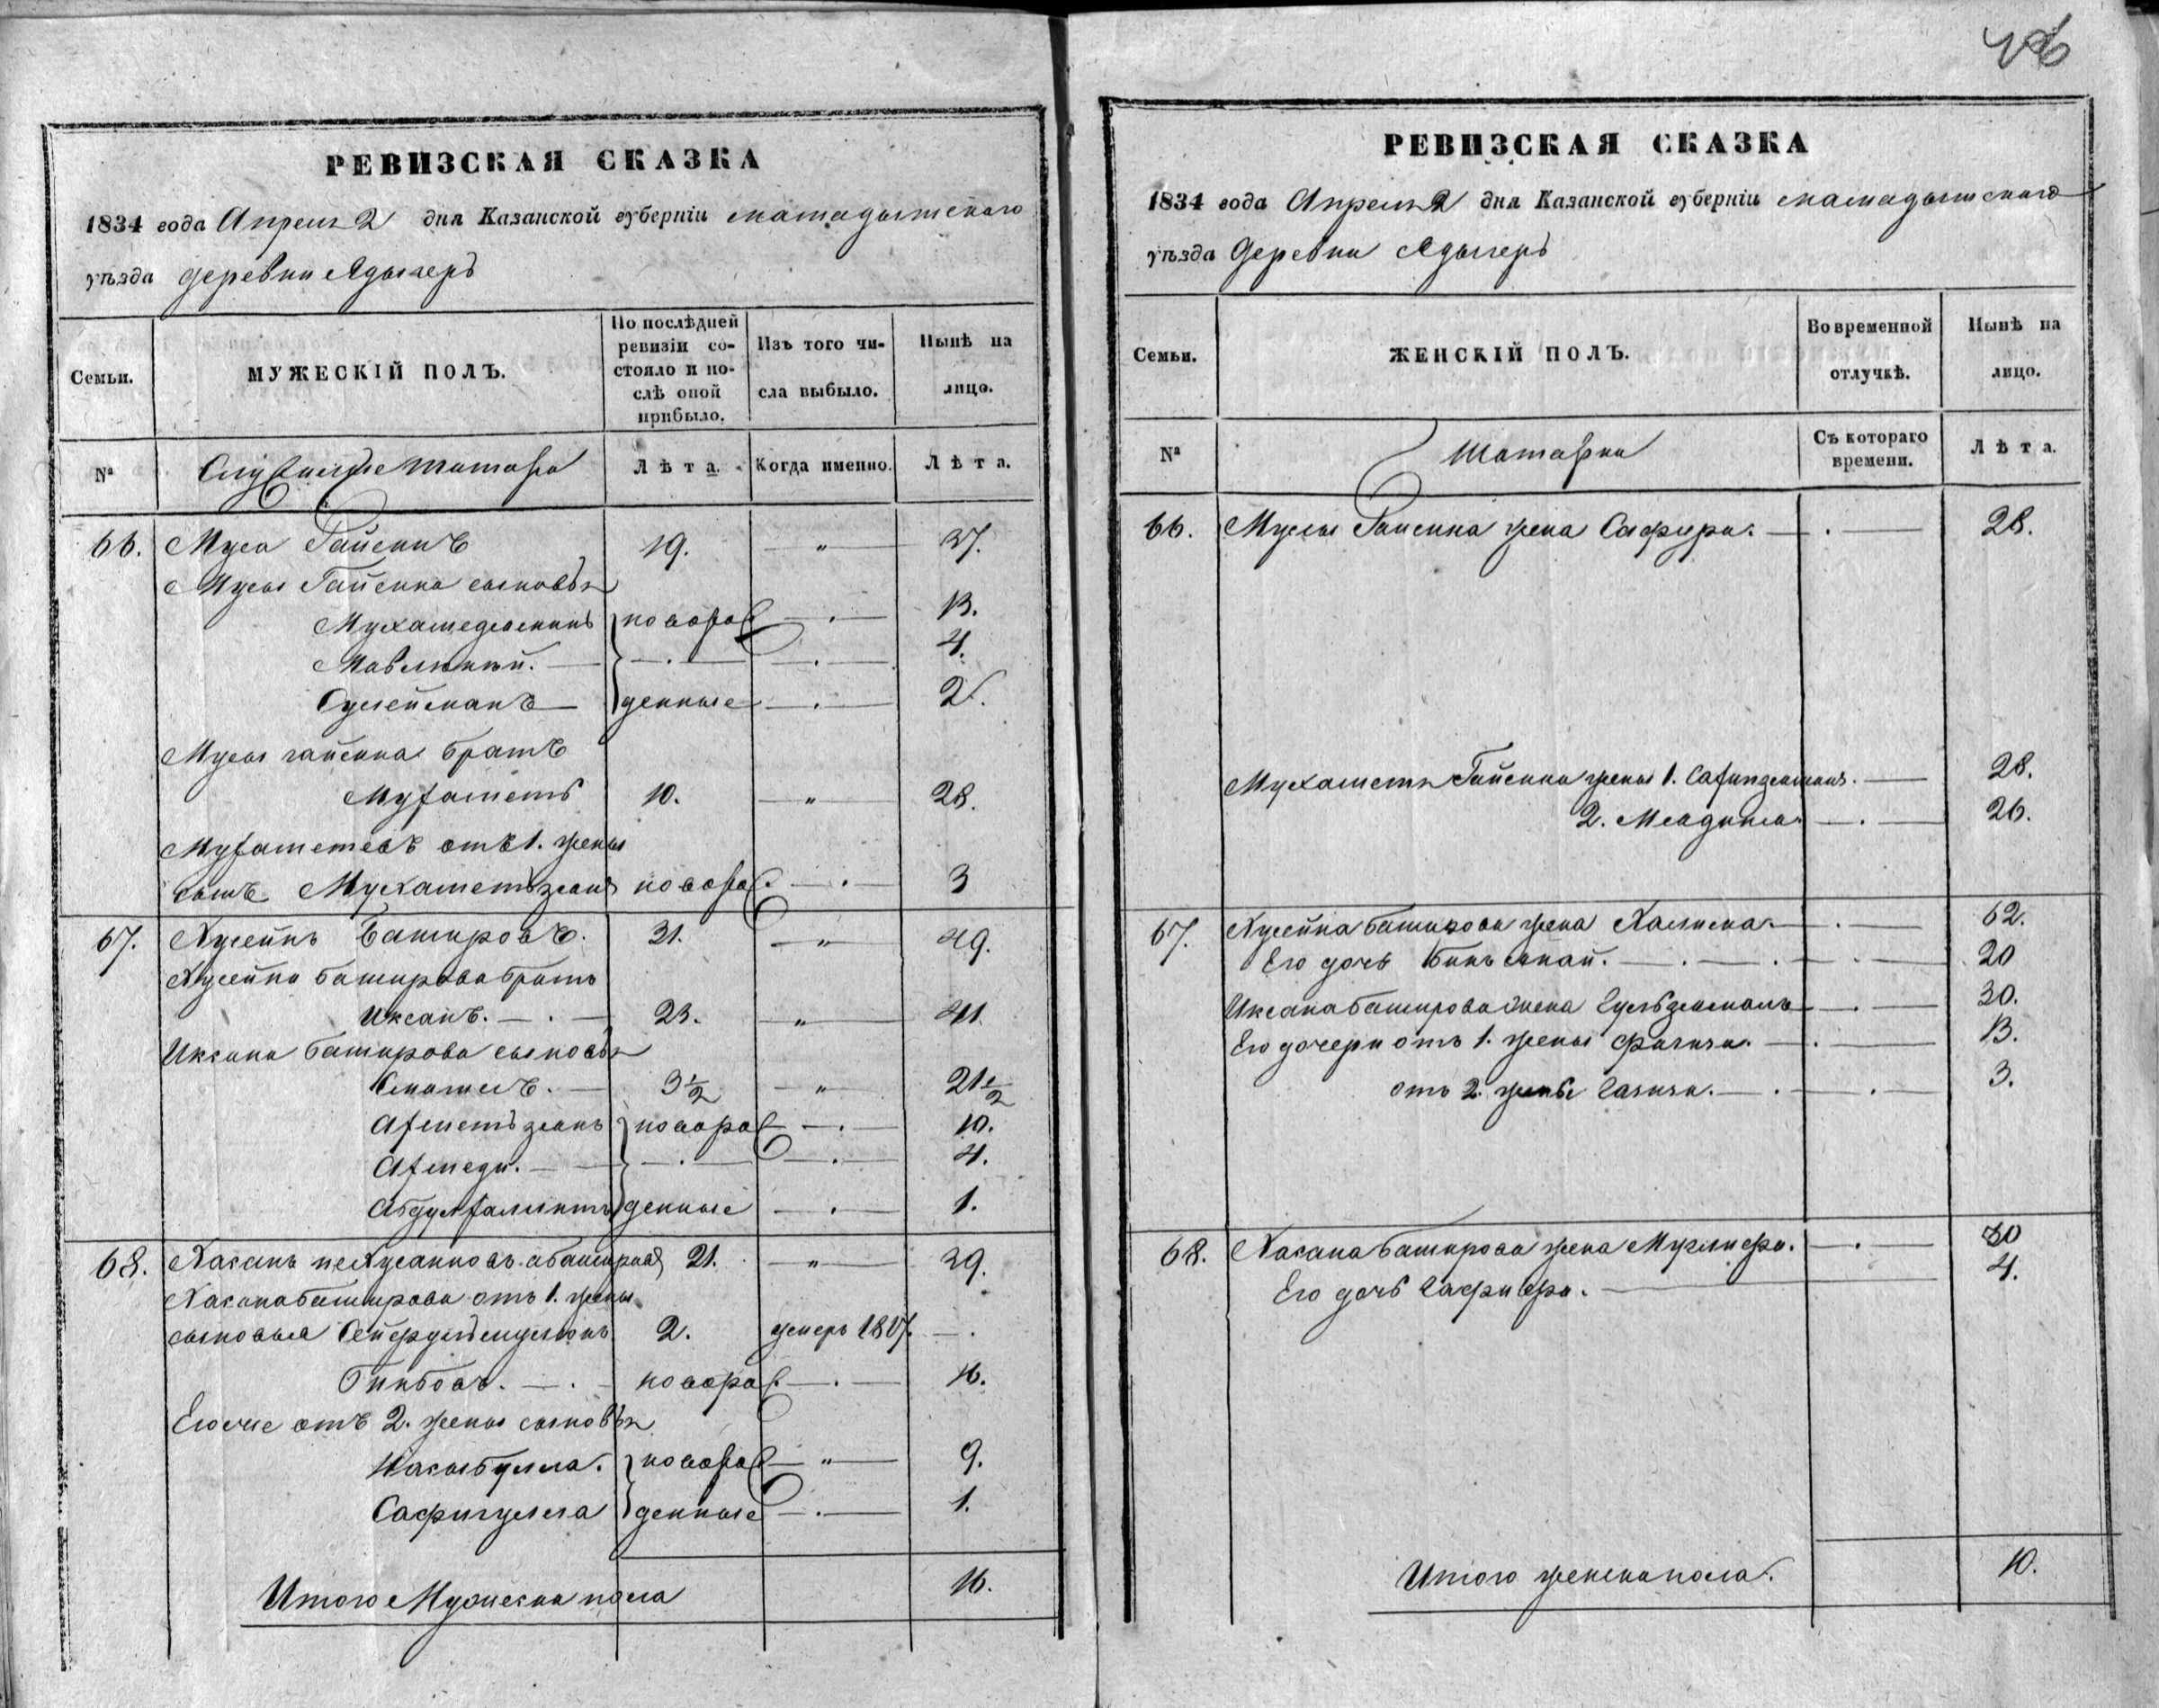 РЕВИЗСКАЯ СКАЗКА
1834 года Апреля 2 дня Казанской губерніи мамадышского
уѣзда деревни Ядыгеръ
Семьи.
МУЖЕСКІЙ ПОЛЪ.
По послѣдней ревизіи со-
стояло и по-
слѣ оной
прибыло.
Изъ того чи-
сла выбыло.
Нынѣ на
лицо.
№
Служилые татара
Лѣта.
Когда именно.
Лѣта.
66. Муса Гайсинъ 19. — " — 37.
Мусы Гайсина сыновья
Мухамедьяминъ новорож — . — 13.
Мавлюкѣй. — — . — — . — 4.
Сулейманъ — денные — . — 2.
Мусы гайсина братъ
Мухаметь 10. — " — 28.
Мухаметевъ отъ 1. жены
сынъ Мухаметьзянъ новорож. — . — 3
67. Хусейнъ Башировъ. 31. — " — 49.
Хусейна баширова братъ
Иксанъ. — . — 23. — " — 41
Иксана баширова сыновья
Смаилъ. — 3½ — " — 21½
Ахметьзянъ новорож — . — 10.
Ахмеди. — — . — — . — 4.
Абдулхаликъ денные — . — 1.
68. Хасанъ не Хусаиновъ а башировъ 21. — " — 39.
Хасана баширова отъ 1. жены
сыновья Сейфульмулюкъ 2. умеръ 1817. — .
Гинбовъ. — . — новорож. — . — 16.
Его же отъ 2. жены сыновья
Насыбулла. новорож — " — 9.
Сафигулла денные — . — 1.
Итого Мужеска пола 16.
РЕВИЗСКАЯ СКАЗКА
1834 года Апреля 2 дня Казанской губерніи мамадышского
уѣзда деревни Ядыгеръ
Семьи.
ЖЕНСКІЙ ПОЛЪ.
Во временной
отлучкѣ.
Нынѣ на
лицо.
№
Татарки
Съ котораго
времени.
Лѣта.
66. Мусы Гайсина жена Сафура. — . — 28.
Мухаметя Гайсина жены 1. Сафинземаль. — 28.
2. Мадина. — . — 26.
67. Хусейна баширова жена Халима. — . — 62.
Его дочь Бикъ ынай. — . — . — . — 20
Иксана баширова жена Гульземаль — . — 30.
Его дочери отъ 1. жены Фагиза. — . — 13.
отъ 2. жены Газиза. — . — . — 3.
68. Хасана баширова жена Музлифа. — . — 30
Его дочь Гафифа. — 4.
Итого женска пола. 10.